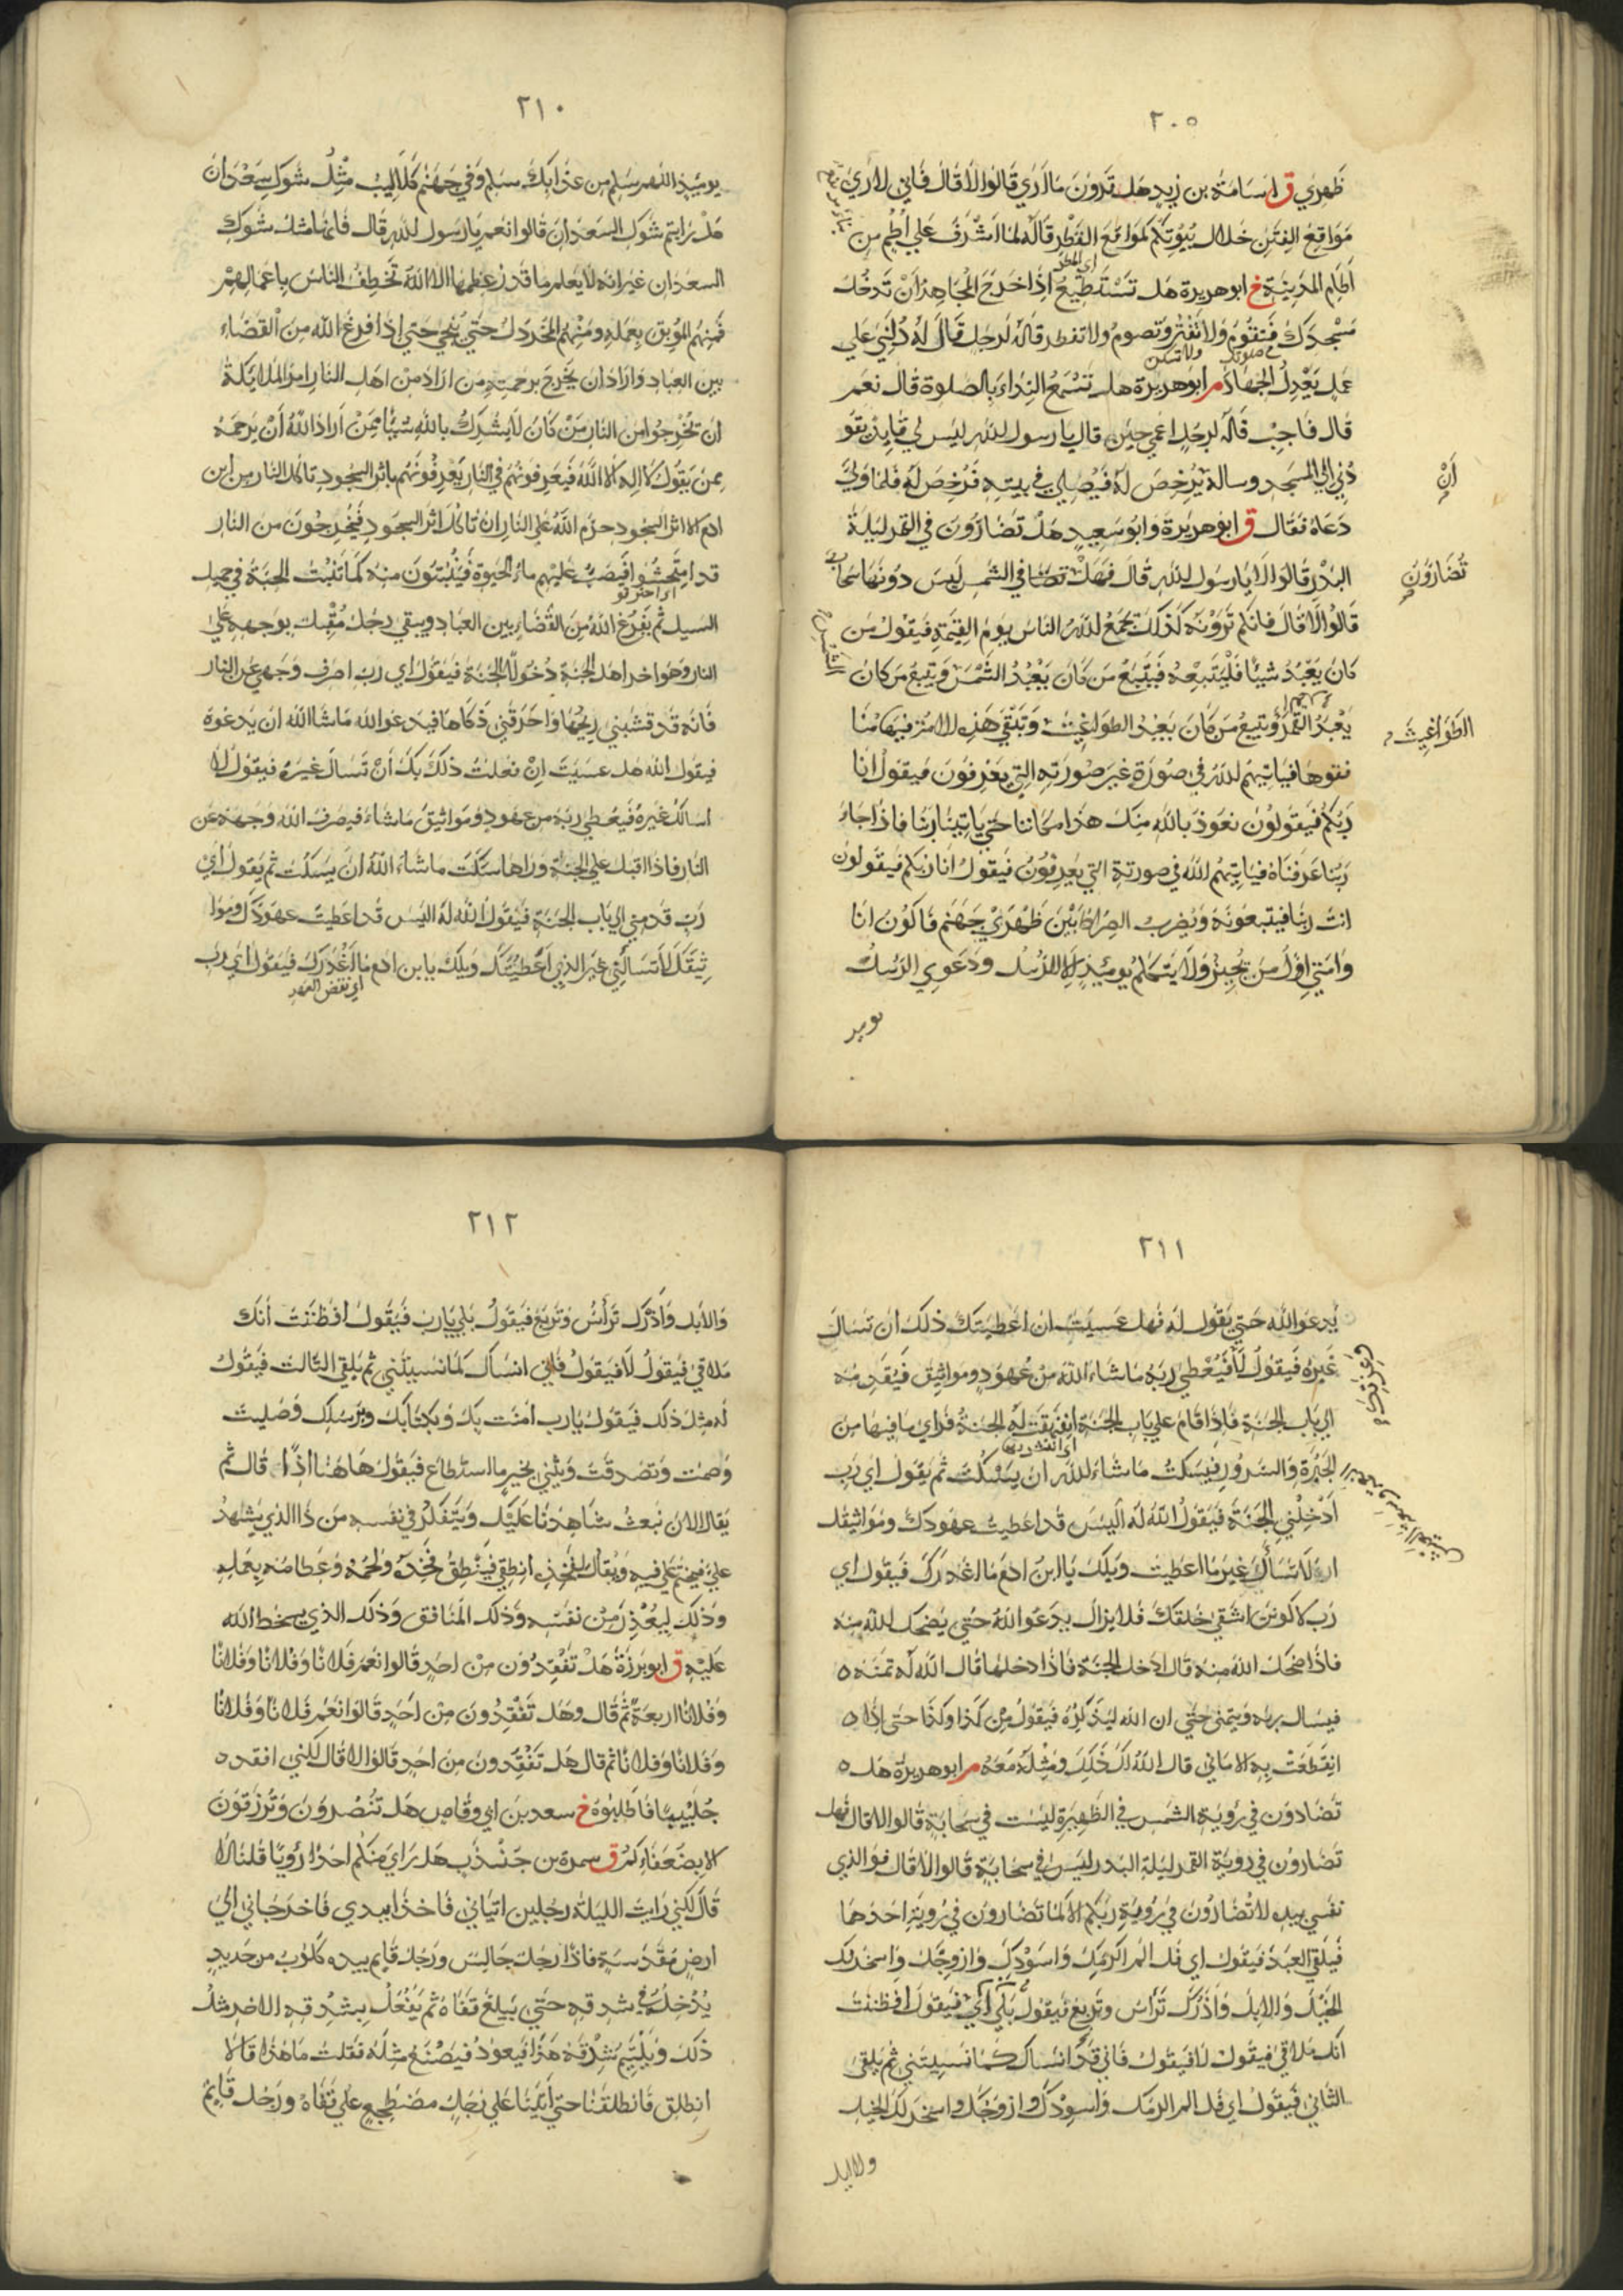 ٢٠٥
ظهري ق اسامة بن زيد هل ترون ما اري قالوا لا قال فاني لاري
مواقع الفتن خلال بيوتكم كمواقع القطر قاله لما اشرف علي اطم من
اي المطر
اطام المدينة خ ابو هريرة هل تستطيع اذا خرج المجاهد ان تدخل
مسجدك فتقوم ولا تفتر وتصوم ولا تفطر قاله لرجل قال له دلني علي
عمل يعدل الجهاد م ابو هريرة هل تسمع النداء بالصلوة قال نعم
قال فاجب قاله لرجل اعمي حين قال يا رسول الله ليس لي قايد يقو
دني الي المسجد وساله يرخص له فيصلي في بيته فرخص له فلما ولي
ان
دعاه فقال ق ابو هريرة وابو سعيد هل تضارون في القمر ليلة
البدر قالوا لا يا رسول الله قال فهل تضا في الشمس ليس دونها سحاب
تضارون
قالوا لا قال فانكم ترونه كذلك يجمع الله الناس يوم القيمة فيقول من
كان يعبد شيئا فليتبعه فيتبع من كان يعبد الشمس ويتبع من كان
الشمس
يعبد القمر ويتبع من كان يعبد الطواغيت وتبقي هذه الامة فيها منا
الطواغيث
فقوها فياتيهم الله في صورة غير صورته التي يعرفون فيقول انا
ربكم فيقولون نعوذ بالله منك هذا مكاننا حتي ياتينا ربنا فاذا جاء
ربنا عرفناه فياتيهم الله في صورته التي يعرفون فيقول انا ربكم فيقولون
انت ربنا فيتبعونه ويضرب الصراط بين ظهري جهنم فاكون انا
وامتي اول من يجيز ولا يتكلم يومئذ الا الرسل ودعوي الرسل
يوميذ
٢١٠
يوميذ اللهم سلم من عذابك سلم وفي جهنم كلاليب مثل شوك سعدان
هل رايتم شوك السعدان قالوا نعم يا رسول الله قال فانها مثل شوك
السعدان غير انه لا يعلم ما قدر عظمها الا الله تخطف الناس باعمالهم
فمنهم الموبق بعمله ومنهم المخردل حتي ينجي حتي اذا فرغ الله من القضاء
بين العباد واراد ان يخرج برحمته من اراد من اهل النار امر الملايكة
ان تخرجوا من النار من كان لا يشرك بالله شيئا ممن اراد الله ان يرحمه
ممن يقول لا اله الا الله فيعرفونهم في النار يعرفونهم باثر السجود تاكل النار من ابن
ادم الا اثر السجود حرم الله علي النار ان تاكل اثر السجود فيخرجون من النار
قد امتحشوا فيصب عليهم ماء الحيوة فينبتون منه كما تنبت الحبة في حميل
اي احترقو
السيل ثم يفرغ الله من القضاء بين العباد ويبقي رجل مقبل بوجهه علي
النار وهو اخر اهل الجنة دخولا الجنة فيقول اي رب اصرف وجهي عن النار
فانه قد قشبني ريحها واحرقني ذكاها فيدعو الله ما شا الله ان يدعوه
فيقول الله هل عسيت ان فعلت ذلك بك ان تسال غيره فيقول لا
اسالك غيره فيعطي ربه من عهود ومواثيق ما شاء فيصرف الله وجهه عن
النار فاذا اقبل علي الجنة وراها سكت ما شاء الله ان يسكت ثم يقول اي
رب قدمني الي باب الجنة فيقول الله له اليس قد اعطيت عهودك وموا
ثيقك لا تسالني غير الذي اعطيتك ويلك يا بن ادم ما اغدرك فيقول اي رب
اي نقض العهد
٢١١
يدعو الله حتي يقول له فهل عسيت ان اعطيتك ذلك ان تسال
غيره فيقول لا فيعطي ربه ما شاء الله من عهود ومواثيق فيقدمه
وعزتك
الي باب الجنة فاذا قام علي باب الجنة انفهقت له الجنة فراي ما فيها من
الحبرة والسرور فيسكت ما شاء الله ان يسكت ثم يقول اي رب
ادخلني الجنة فيقول الله له اليس قد اعطيت عهودك ومواثيقك
ان لا تسال غير ما اعطيت ويلك يا ابن ادم ما اغدرك فيقول اي
رب لا كونن اشقي خلقك فلا يزال يدعو الله حتي يضحك الله منه
فاذا ضحك الله منه قال ادخل الجنة فاذا دخلها قال الله له تمنه ٥
فيسال ربه ويتمني حتي ان الله ليذكره فيقول من كذا وكذا حتي اذا ٥
انقطعت به الاماني قال الله لك ذلك ومثله معه م ابو هريرة هل ٥
تضادون في رؤية الشمس في الظهيرة ليست في سحابة قالوا لا قال فهل
تضارون في روية القمر ليلة البدر ليس في سحابة قالوا لا قال فو الذي
نفسي بيده لا تضارون في رؤية ربكم الا كما تضارون في رؤية احدهما
فيلقي العبد فيقول اي فل الم اكرمك واسودك وازوجك واسخر لك
الخيل والابل واذرك تراس وتربع فيقول بلي اي فيقول افظننت
انك ملاقي فيقول لا فيقول فاني قد انساك كما نسيتني ثم يلقي
الثاني فيقول اي فل الم اكرمك واسودك وازوجك واسخر لك الخيل
والابل
٢١٢
والابل واذرك تراس وتربع فيقول بلي يا رب فيقول افظننت انك
ملاقي فيقول لا فيقول فاني انساك كما نسيتني ثم يلقي الثالث فيقول
له مثل ذلك فيقول يا رب امنت بك وبكتابك وبرسلك وصليت
وصمت وتصدقت ويثني بخير ما استطاع فيقول هاهنا اذا قال ثم
يقال الان نبعث شاهدنا عليك ويتفكر في نفسه من ذا الذي يشهد
علي فيختم علي فيه ويقال لفخذه انطقي فينطق فخذه ولحمه وعظامه بعمله
وذلك ليعذر من نفسه وذلك المنافق وذلك الذي يسخط الله
عليه ق ابو برزة هل تفقدون من احد قالوا نعم فلانا وفلانا وفلانا
وفلانا اربعة ثم قال وهل تفقدون من احد قالوا نعم فلانا وفلانا
وفلانا وفلانا ثم قال هل تفقدون من احد قالوا لا قال لكني افقد ٥
جليبيبا فاطلبوه خ سعد بن ابي وقاص هل تنصرون وترزقون
الا بضعفاءكم ق سمرة بن جندب هل راي منكم احد رؤيا قلنا لا
قال لكني رايت الليلة رجلين اتياني فاخذا بيدي فاخرجاني الي
ارض مقدسة فاذا رجل جالس ورجل قايم بيده كلوب من حديد
يدخله في شدقه حتي يبلغ قفاه ثم يفعل بشدقه الاخر مثل
ذلك ويلتيم شدقه هذا فيعود فيصنع مثله فقلت ما هذا قالا
انطلق فانطلقنا حتي اتينا علي رجل مضطجع علي قفاه ورجل قايم